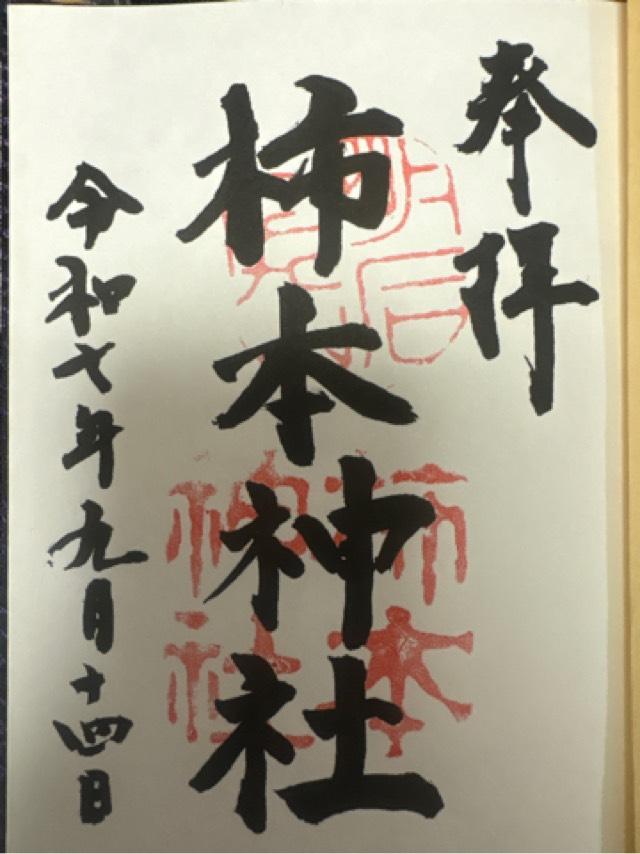 奉拝
柿本神社
令和七年九月十四日
柿本
神社